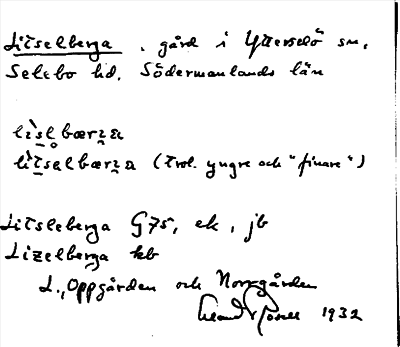 Litselberga, gård i Ytterselö sn,
Selebo hd, Södermanlands län
li̇̀sl bærɪa
li̇̀tsəlbærɪa (trol. yngre och "finare")
Litsleberga G75, ek, jb
Lizelberga kb
L., Oppgården och Norrgården
1932